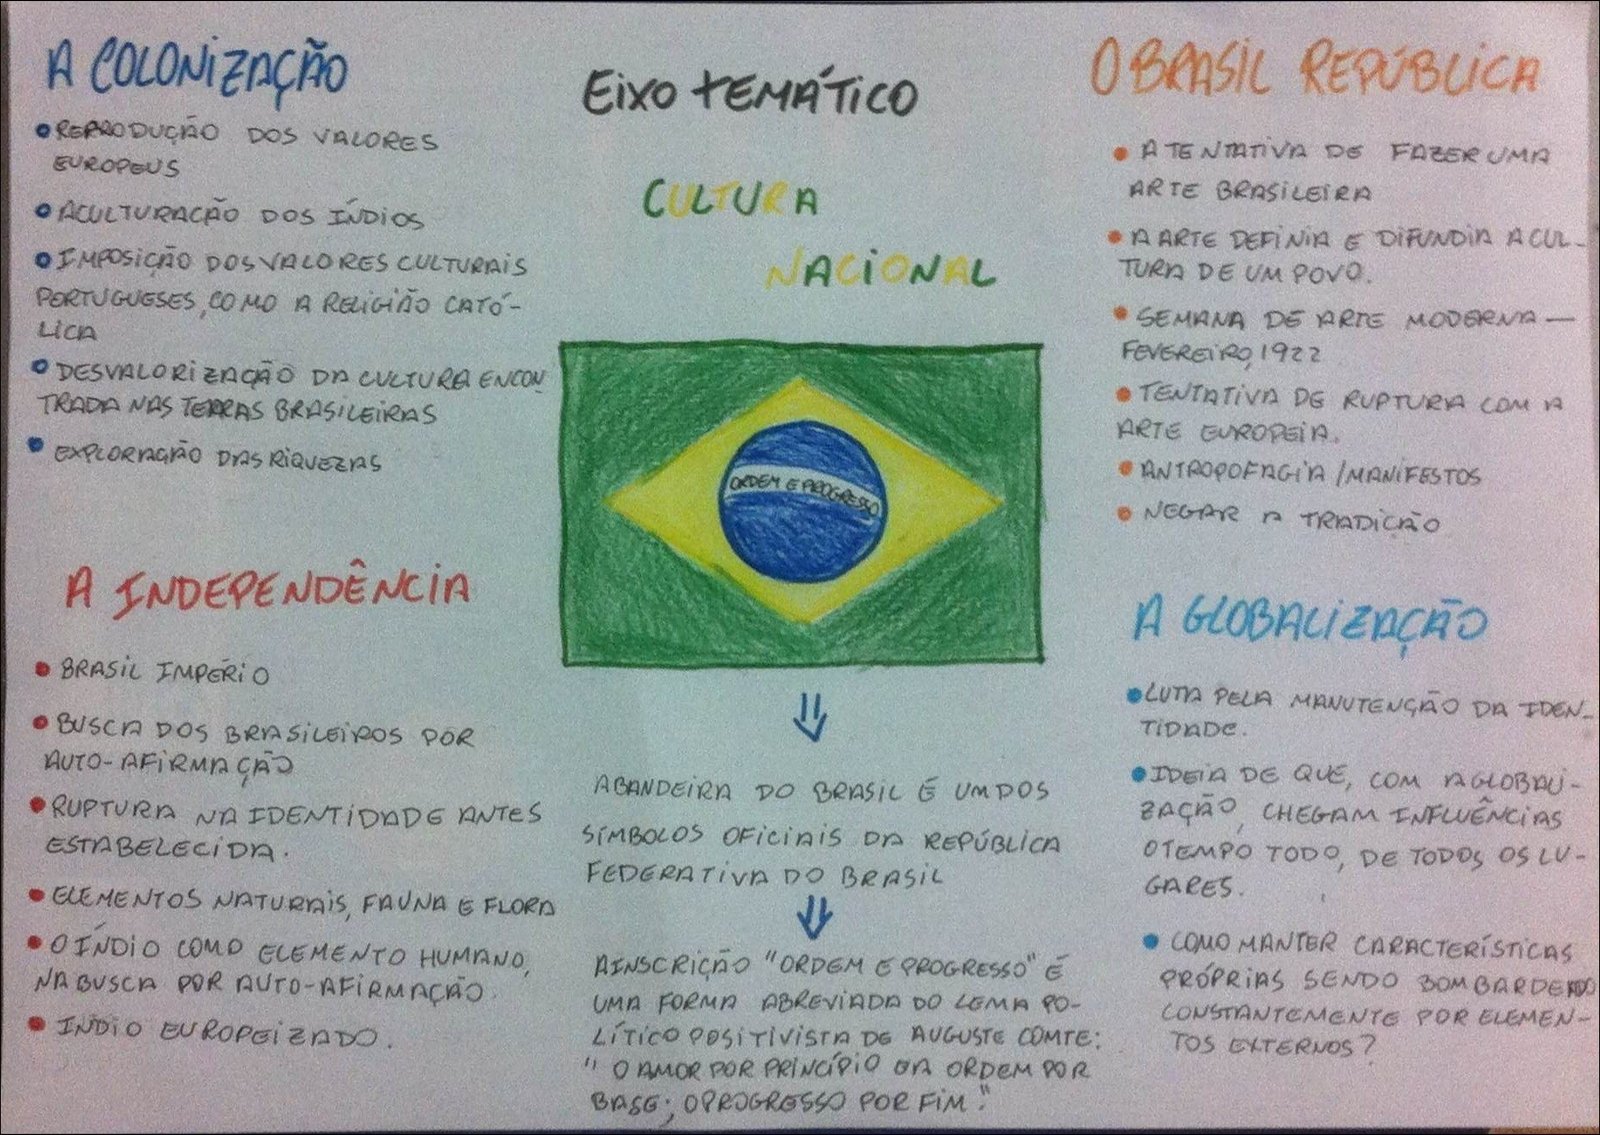 A COLONIZAÇÃO
• REPRODUÇÃO DOS VALORES
EUROPEUS
• ACULTURAÇÃO DOS ÍNDIOS
• IMPOSIÇÃO DOS VALORES CULTURAIS
PORTUGUESES, COMO A RELIGIÃO CATÓ-
LICA
• DESVALORIZAÇÃO DA CULTURA ENCON
TRADA NAS TERRAS BRASILEIRAS
• EXPLORAÇÃO DAS RIQUEZAS
A INDEPENDÊNCIA
• BRASIL IMPÉRIO
• BUSCA DOS BRASILEIROS POR
AUTO-AFIRMAÇÃO
• RUPTURA NA IDENTIDADE ANTES
ESTABELECIDA.
• ELEMENTOS NATURAIS, FAUNA E FLORA
• O ÍNDIO COMO ELEMENTO HUMANO,
NA BUSCA POR AUTO-AFIRMAÇÃO.
• INDIO EUROPEIZADO.
EIXO TEMÁTICO
CULTURA
NACIONAL
ORDEM E PROGRESSO
A BANDEIRA DO BRASIL É UM DOS
SÍMBOLOS OFICIAIS DA REPÚBLICA
FEDERATIVA DO BRASIL
A INSCRIÇÃO "ORDEM E PROGRESSO" É
UMA FORMA ABREVIADA DO LEMA PO-
LÍTICO POSITIVISTA DE AUGUSTE COMTE:
"O AMOR POR PRINCÍPIO E A ORDEM POR
BASE; O PROGRESSO POR FIM."
O BRASIL REPÚBLICA
• A TENTATIVA DE FAZER UMA
ARTE BRASILEIRA
• A ARTE DEFINIA E DIFUNDIA A CUL-
TURA DE UM POVO.
• SEMANA DE ARTE MODERNA —
FEVEREIRO, 1922
• TENTATIVA DE RUPTURA COM A
ARTE EUROPEIA.
• ANTROPOFAGIA / MANIFESTOS
• NEGAR A TRADIÇÃO
A GLOBALIZAÇÃO
• LUTA PELA MANUTENÇÃO DA IDEN-
TIDADE.
• IDEIA DE QUE, COM A GLOBALI-
ZAÇÃO, CHEGAM INFLUÊNCIAS
O TEMPO TODO, DE TODOS OS LU-
GARES.
• COMO MANTER CARACTERÍSTICAS
PRÓPRIAS SENDO BOMBARDEADO
CONSTANTEMENTE POR ELEMEN-
TOS EXTERNOS?